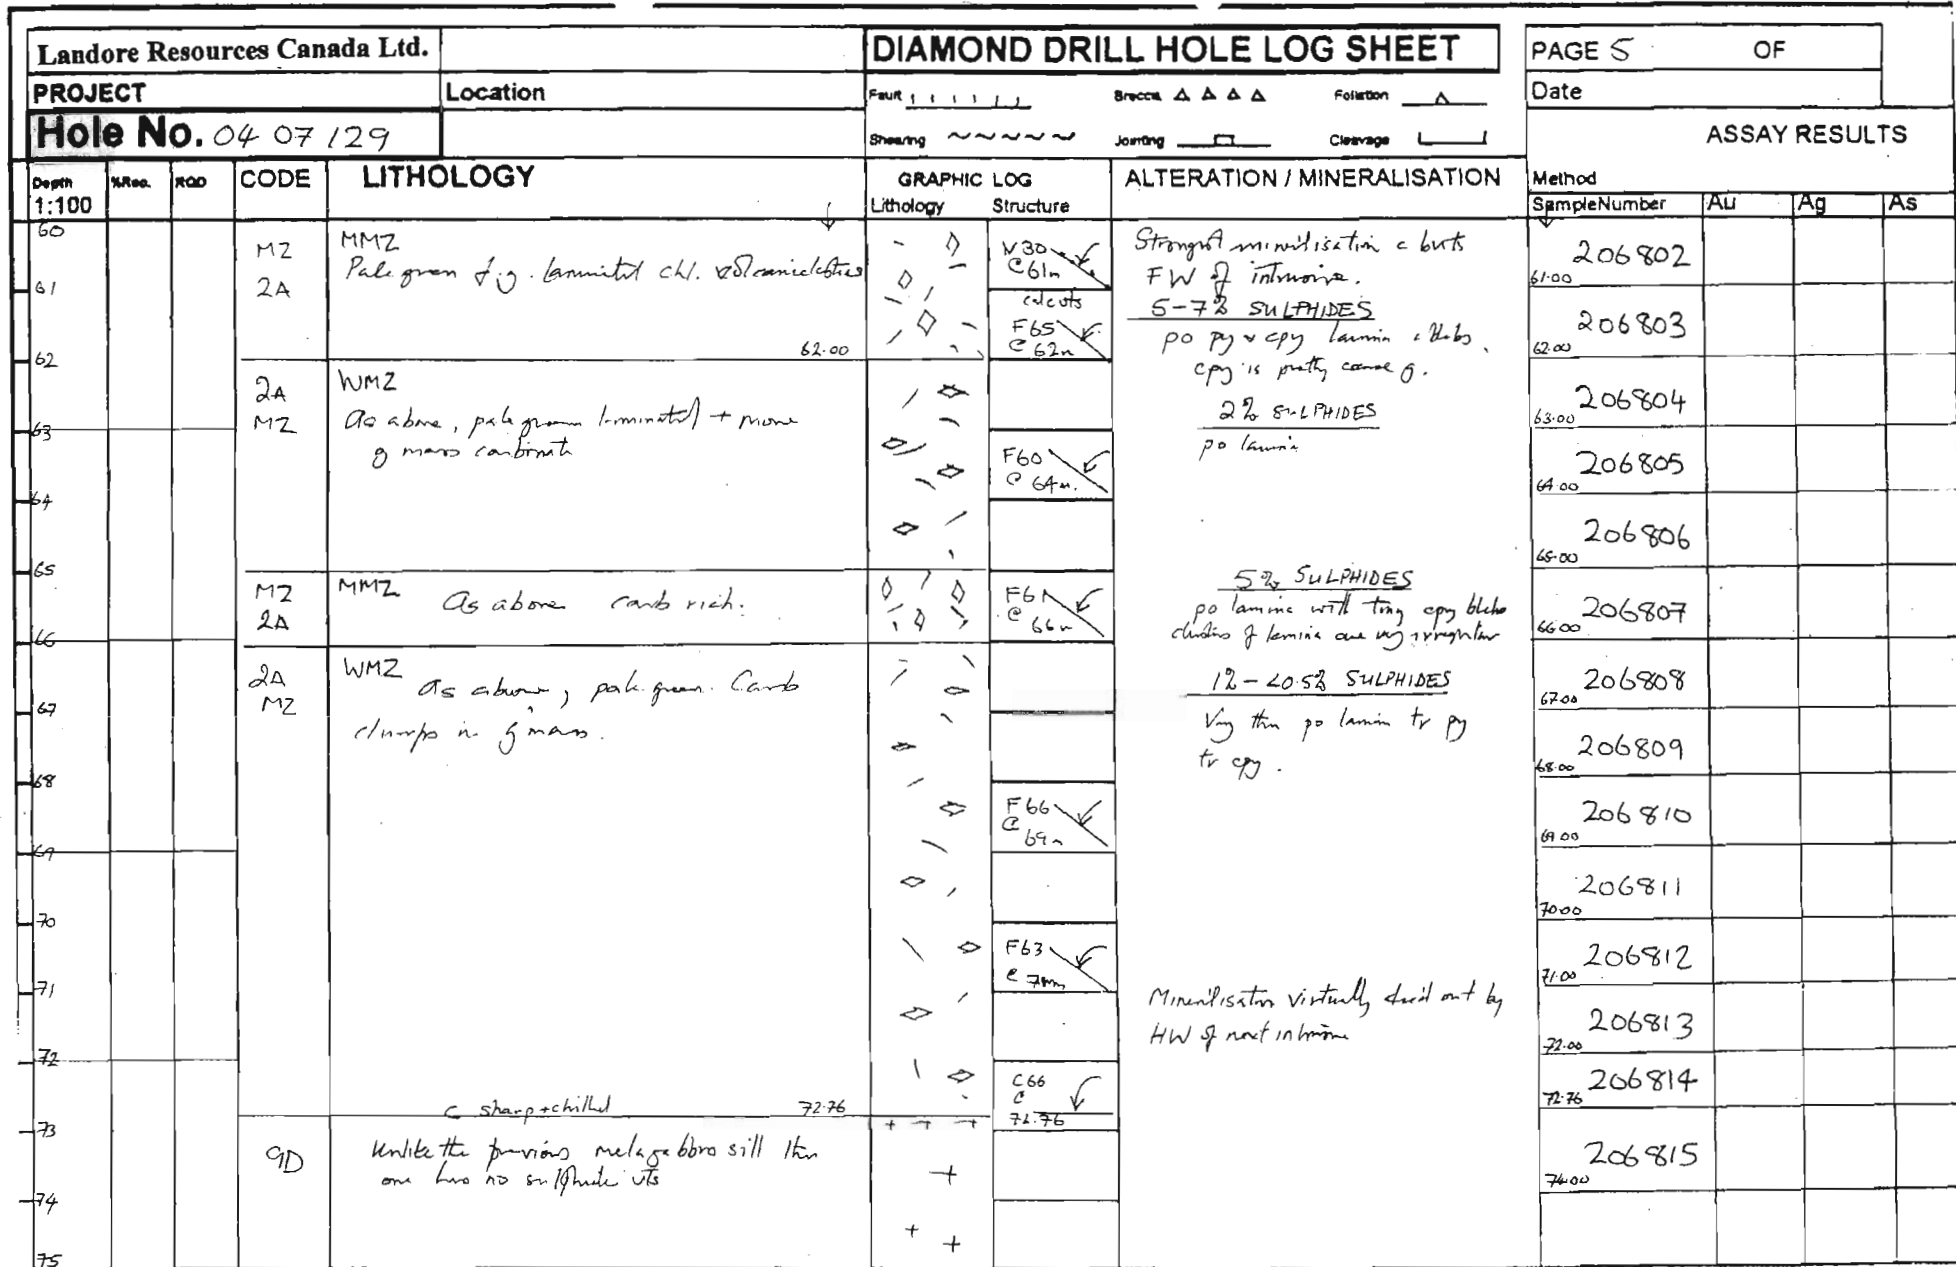 Landore Resources Canada Ltd.
DIAMOND DRILL HOLE LOG SHEET
PAGE 5 OF
PROJECT
Location
Fault
Breccia
Foliation
Date
Hole No. 04 07 129
Shearing
Jointing
Cleavage
ASSAY RESULTS
Depth
1:100
%Rec.
RQD
CODE
LITHOLOGY
GRAPHIC LOG
Lithology Structure
ALTERATION / MINERALISATION
Method
SampleNumber Au Ag As
60
61
62
63
64
65
66
67
68
69
70
71
72
73
74
75
MZ
2A
MMZ
Pale green f.g. laminated chl.
62.00
2A
MZ
WMZ
As above, pale green laminated + more
g mass carbonate
MZ
2A
MMZ
As above carb rich.
2A
MZ
WMZ
As above, pale green. Carb
clumps in g mass.
C sharp + chilled 72.76
9D
Unlike the previous melagabbro sill this
one has no sulphide vts
V30
@ 61m
calc vts
F65
@ 62m
F60
@ 64m.
F61
@ 66m
F66
@ 69m
F63
@
C66
@
72.76
Strongest mineralisation
FW of intrusive.
5-7% SULPHIDES
po py & cpy lamin + blebs.
cpy is pretty coarse g.
2% SULPHIDES
po lamin
5% SULPHIDES
po laminae with tiny cpy blebs
clusters of lamina are very irregular
1% - <0.5% SULPHIDES
Very thin po lamin tr py
tr cpy.
Mineralisation virtually died out by
HW of next intrusive
206802
61.00
206803
62.00
206804
63.00
206805
64.00
206806
65.00
206807
66.00
206808
67.00
206809
68.00
206810
69.00
206811
70.00
206812
71.00
206813
72.00
206814
72.76
206815
74.00